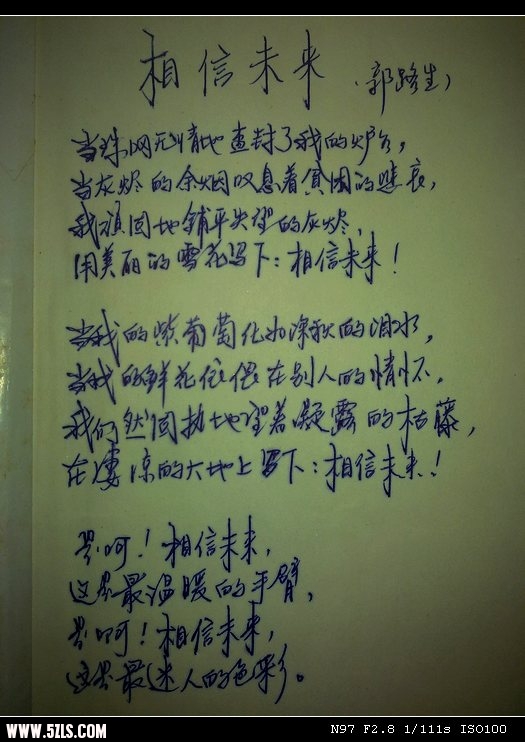 相信未来
(郭路生)
当珠网无情地查封了我的炉台,
当灰烬的余烟叹息着贫困的悲哀,
我顽固地铺平失望的灰烬,
用美丽的雪花写下:相信未来!
当我的紫葡萄化为深秋的泪水,
当我的鲜花依偎在别人的情怀,
我仍然固执地望着凝露的枯藤,
在凄凉的大地上写下:相信未来!
是啊!相信未来,
这是最温暖的手臂,
是啊!相信未来,
这是最迷人的色彩。
WWW.5ZLS.COM
N97 F2.8 1/111s ISO100